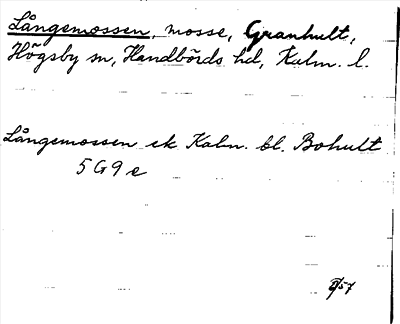 Långemossen, mosse, Granhult,
Högsby sn, Handbörds hd, Kalm. l.
Långemossen ek Kalm. bl. Bohult
5 G 9 e